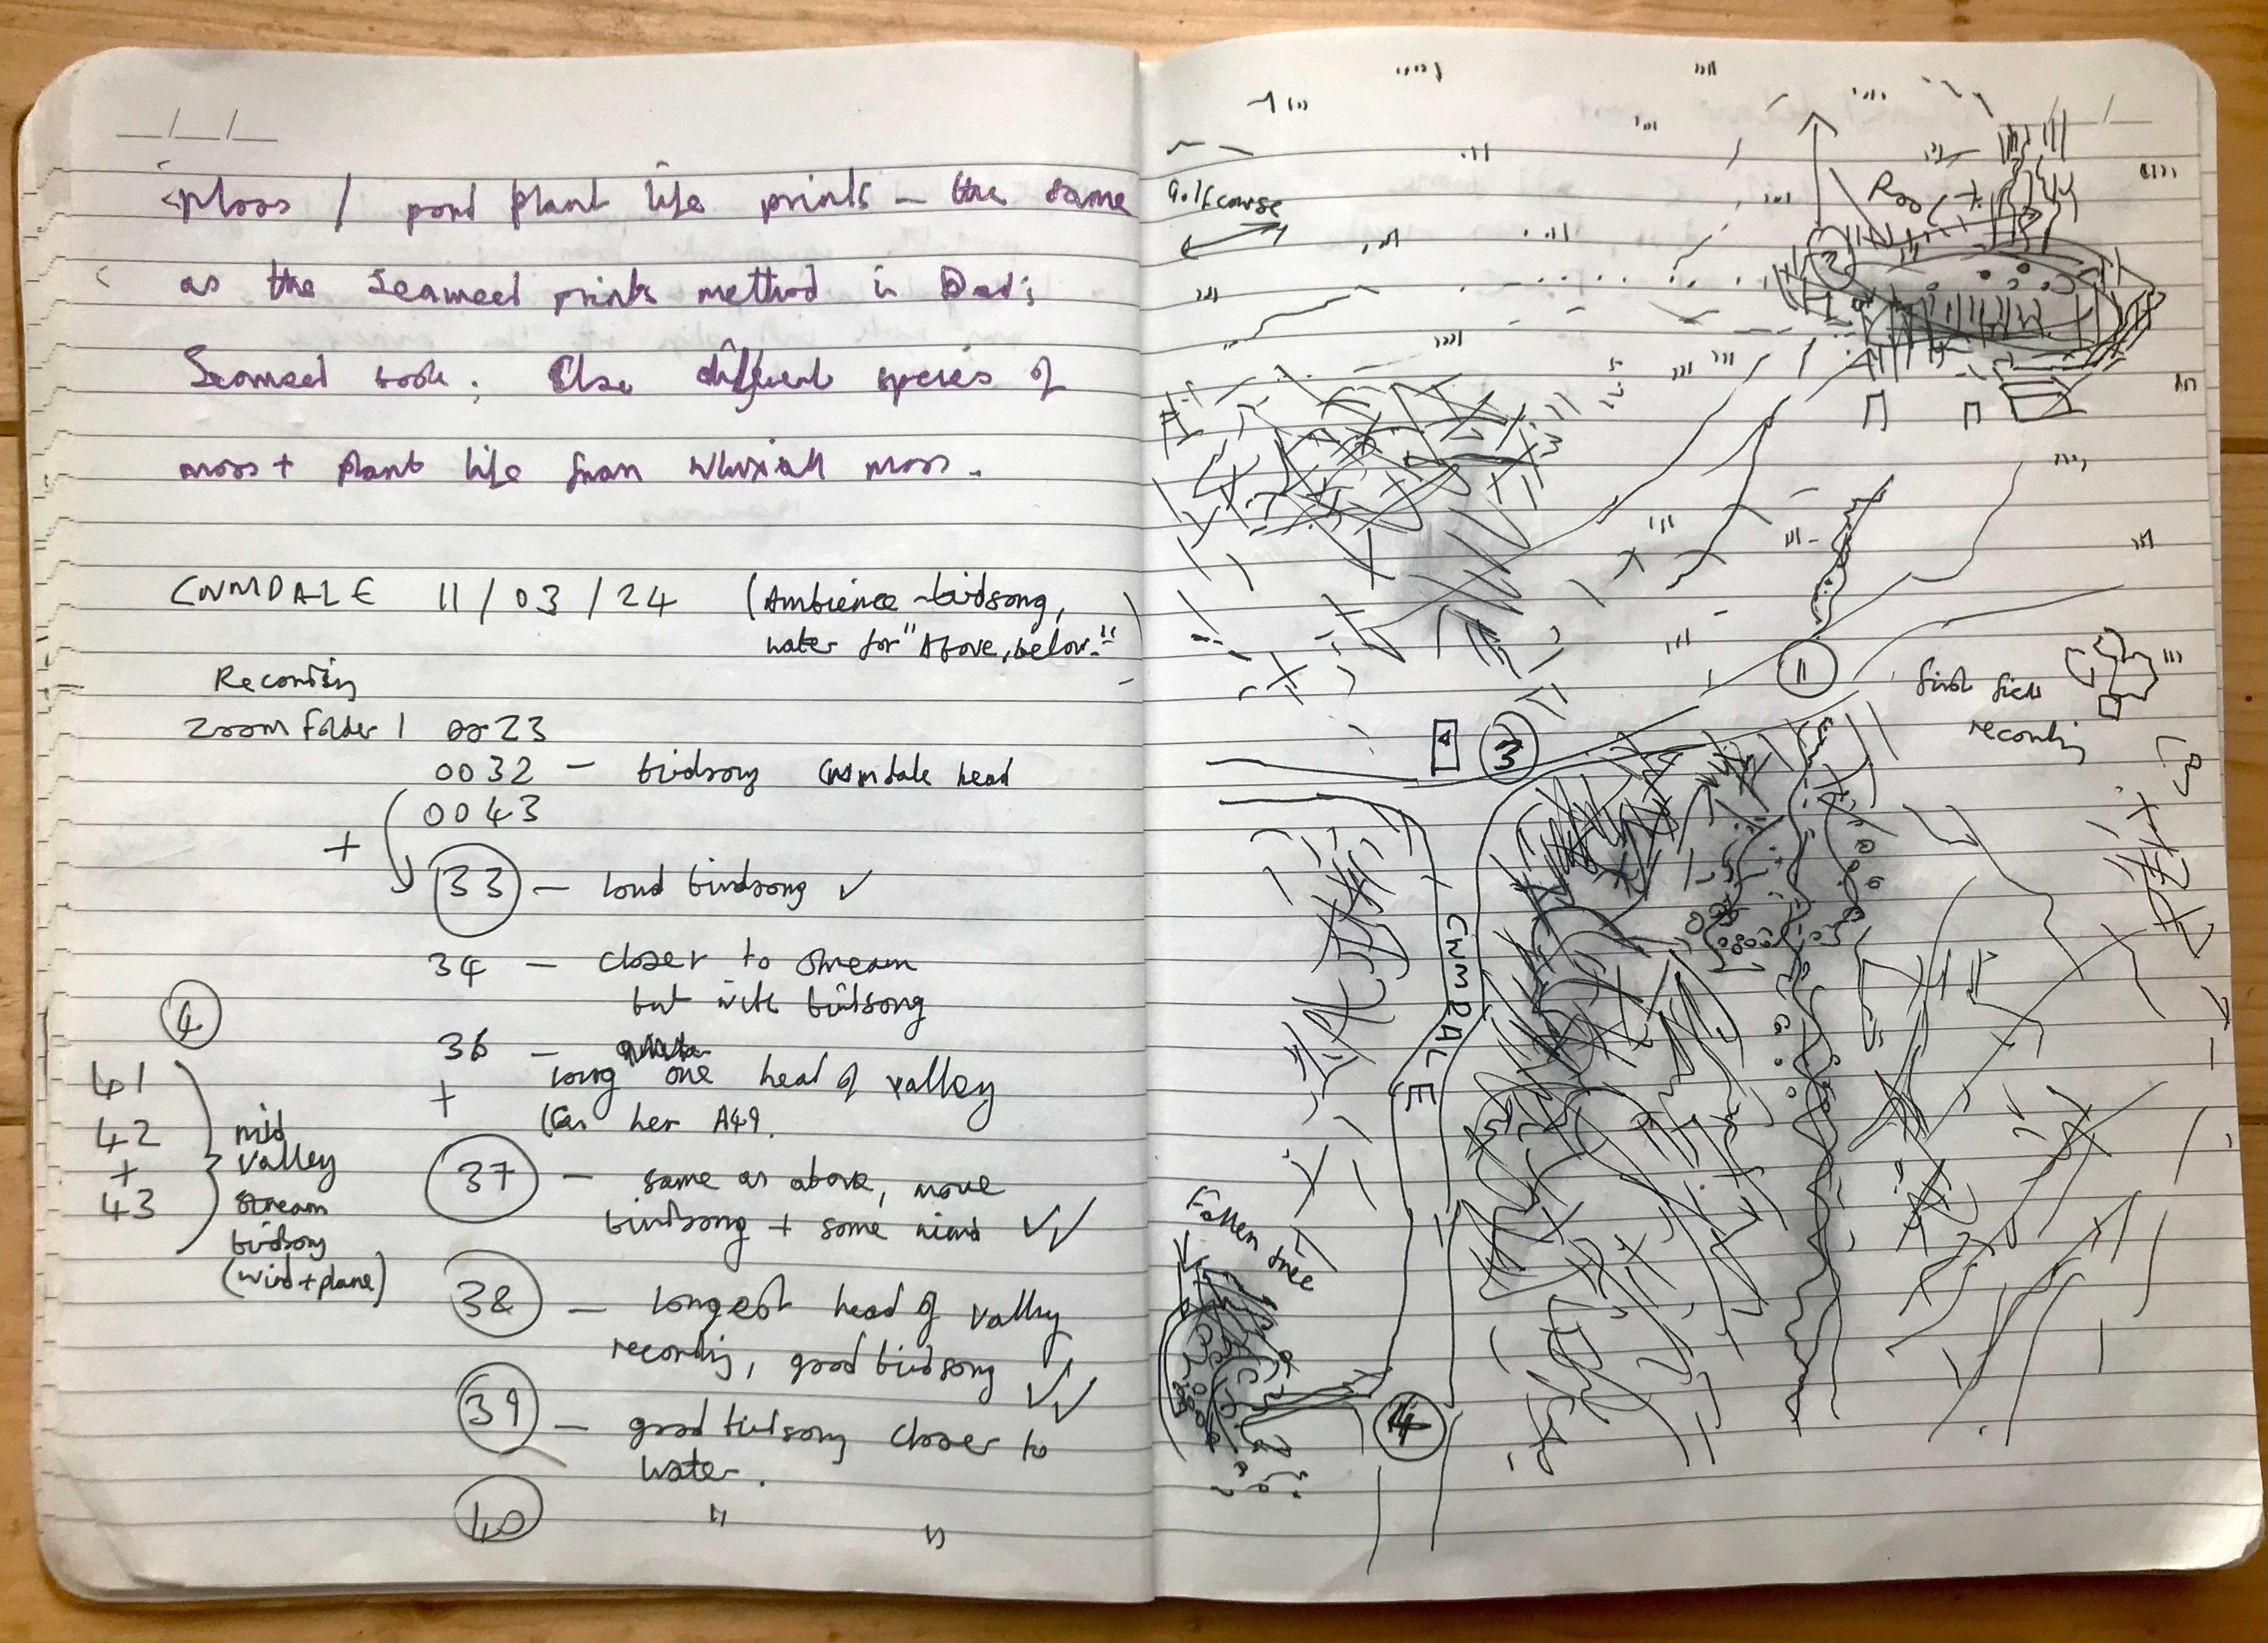 Moss / pond plant life prints – the same
as the Seaweed prints method in Dad's
Seaweed book. Use different species of
moss + plant life from Whixall moss.
CWMDALE 11/03/24 (Ambience – birdsong,
water for "Above, below."
Recording
Zoom folder 1 0023
0032 – birdsong Cwmdale head
0043
+
33 – loud birdsong ✓
34 – closer to stream
but with birdsong
36 –
long one head of valley
+
(Can her A49.
37 – same as above, more
birdsong + some wind ✓✓
38 – longest head of valley
recording, good birdsong ✓✓
39 – good birdsong closer to
water.
40 " "
4
41
42
+
43
mid
valley
stream
birdsong
(wind + plane)
Golf course
2
1
first field
recording
3
CWMDALE
Fallen tree
4